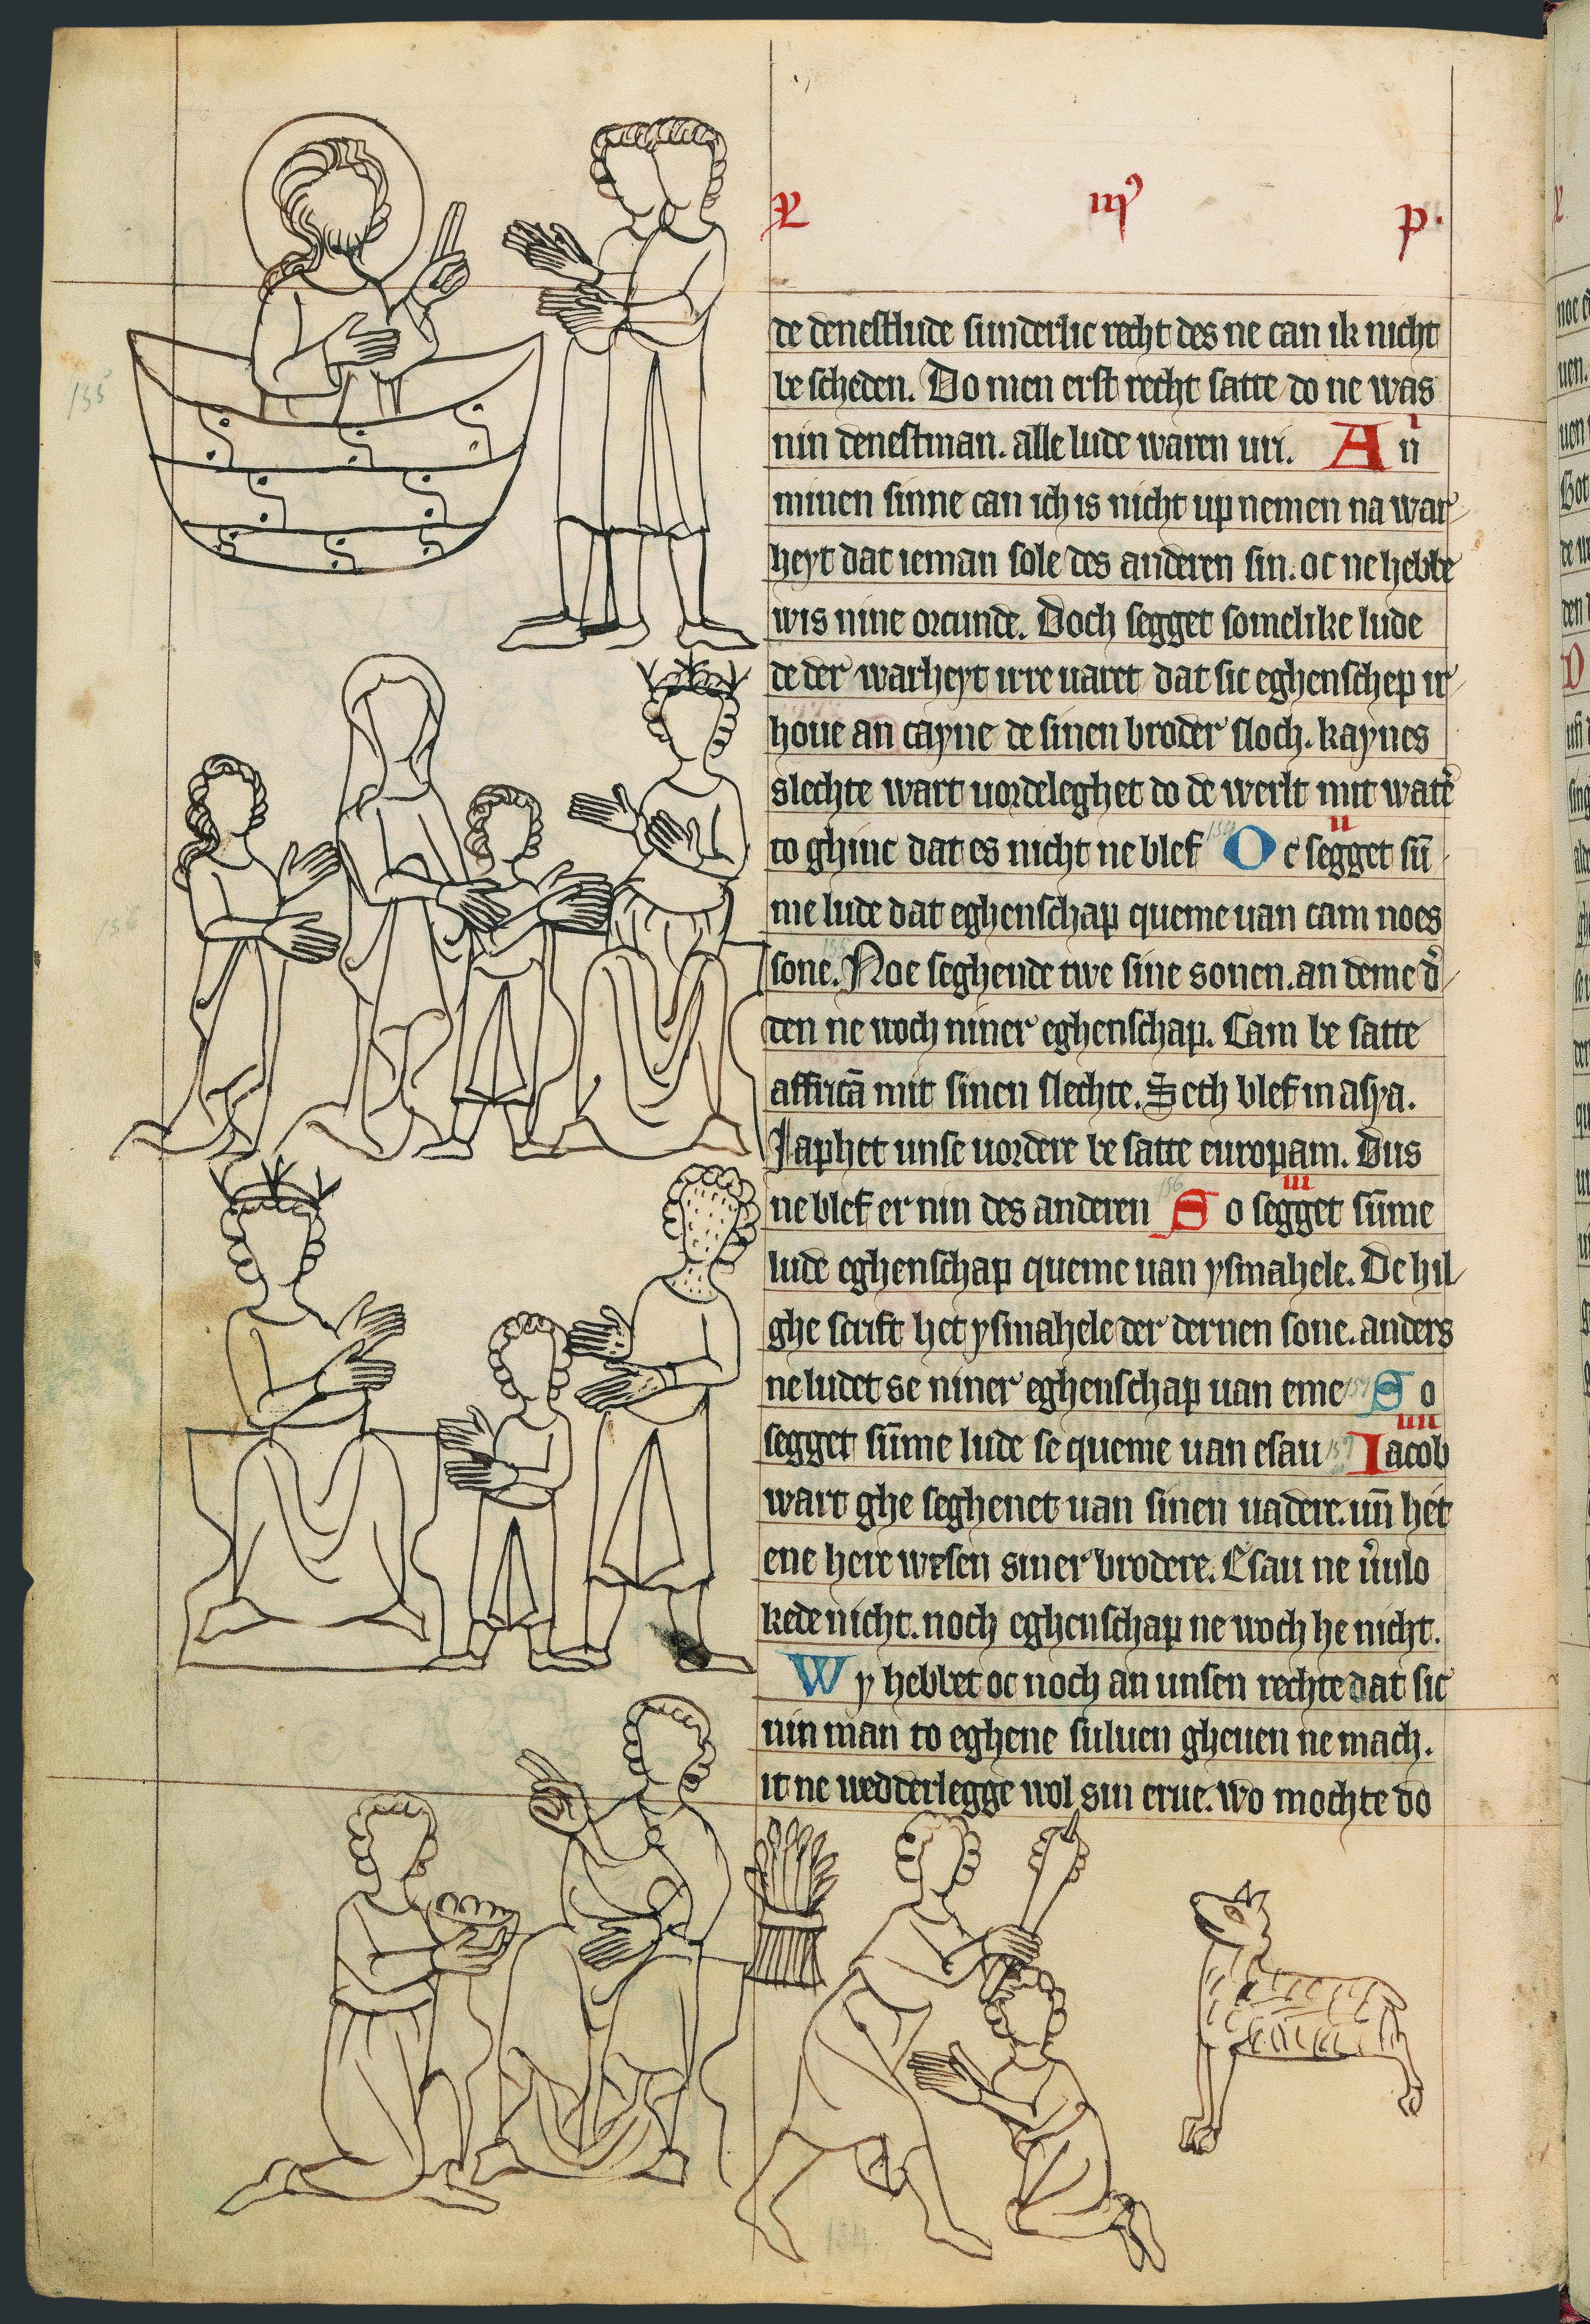 L iij p.
de denestlude sunderlic recht des ne can ik nicht
be scheden. Do men erst recht satte do ne was
nin denestman. alle lude waren uri. An
minen sinne can ich is nicht up nemen na war
heyt dat ieman sole des anderen sin. oc ne hebbe
wis nine orcunde. Doch segget somelike lude
de der warheyt irre uaret dat sic eghenschep ir
houe an cayne de sinen broder sloch. kaynes
slechte wart uordeleghet do de werlt mit wat͛
to ghinc dat es nicht ne blef Oc segget su̅
ii
me lude dat eghenschap queme uan cam noes
sone. Noe seghende twe sine sonen. an deme d͛
den ne woch niner eghenschap. Cam be satte
affrica̅ mit sinen slechte. Seth blef in asya.
Japhet unse uordere be satte europam. Dus
ne blef er nin des anderen So segget su̅me
iii
lude eghenschap queme uan ysmahele. De hil
ghe scrift het ysmahele der dernen sone. anders
ne ludet se niner eghenschap uan eme So
segget su̅me lude se queme uan esau Iacob
iiii
wart ghe seghenet uan sinen uadere. un̅ het
ene here wesen siner brodere. Esau ne u͛ulo
kede nicht. noch eghenschap ne woch he nicht.
Wy hebbet oc noch an unsen rechte dat sic
nin man to eghene suluen gheuen ne mach.
it ne wedderlegge wol sin erue. wo mochte do
155
156
154